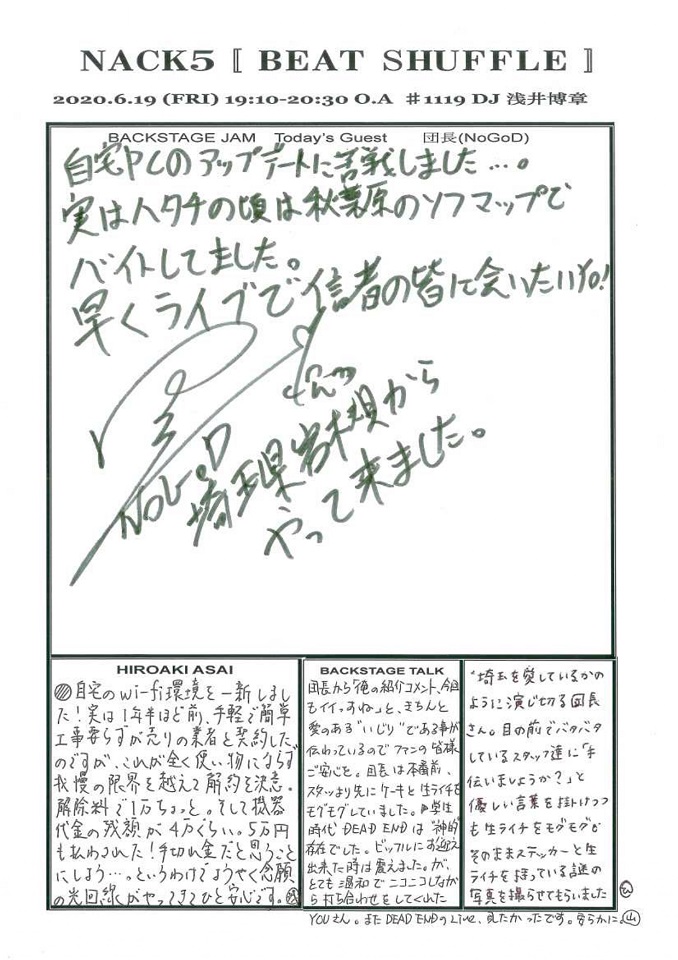 NACK5 〚 BEAT SHUFFLE 〛
2020.6.19 (FRI) 19:10-20:30 O.A ♯1119 DJ 浅井博章
BACKSTAGE JAM Today's Guest 団長(NoGoD)
自宅PCのアップデートに苦戦しました…。
実はハタチの頃は秋葉原のソフマップで
バイトしてました。
早くライブで信者の皆に会いたいYO!
NoGoD
埼玉県岩槻から
やって来ました。
HIROAKI ASAI
自宅のwi-fi環境を一新しまし
た!実は1年半ほど前、手軽で簡単
工事要らずが売りの業者と契約した
のですが、これが全く使い物にならず
我慢の限界を越えて解約を決意。
解除料で1万ちょっと。そして機器
代金の残額が4万ぐらい。5万円
も払わされた!手切れ金だと思うこと
にしよう…。というわけでようやく念願
の光回線がやってきてひと安心です。
BACKSTAGE TALK
団長から「俺の紹介コメント、今回
もイイっすね」と、きちんと
愛のある"いじり"である事が
伝わっているのでファンの皆様
ご安心を。団長は本番前、
スタッフより先にケーキと生ライチを
モグモグしていました。
時代 DEAD END は"神的"
存在でした。ビッフルにお迎え
出来た時は震えました。が、
とても温和でニコニコしながら
打ち合わせをしてくれた
YOUさん。また DEAD END のLive、見たかったです。安らかに。山
"埼玉を愛しているかの
ように演じ切る団長
さん。目の前でバタバタ
しているスタッフ達に「手
伝いましょうか?」と
優しい言葉を掛けつつ
も生ライチをモグモグ
そのままステッカーと生
ライチを持っている謎の
写真を撮らせてもらいました